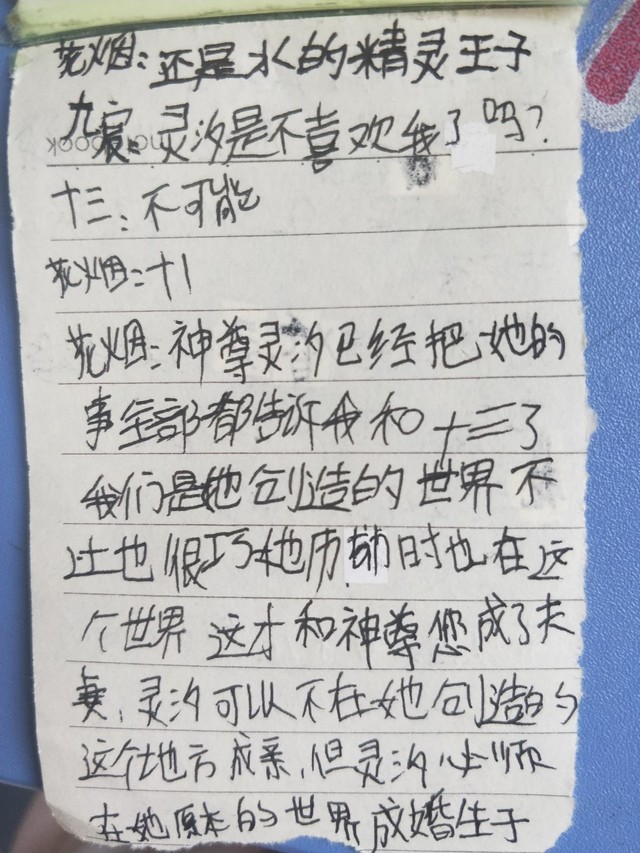 花烟:还是水的精灵王子
九宸:灵汐是不喜欢我了吗?
十三:不可能
花烟:十1
花烟:神尊灵汐已经把她的
事全部都告诉我和十三了
我们是她创造的世界不
过也很巧她历劫时也在这
个世界 这才和神尊您成了夫
妻,灵汐可以不在她创造的
这个地方成亲,但灵汐必须
在她原本的世界成婚生子